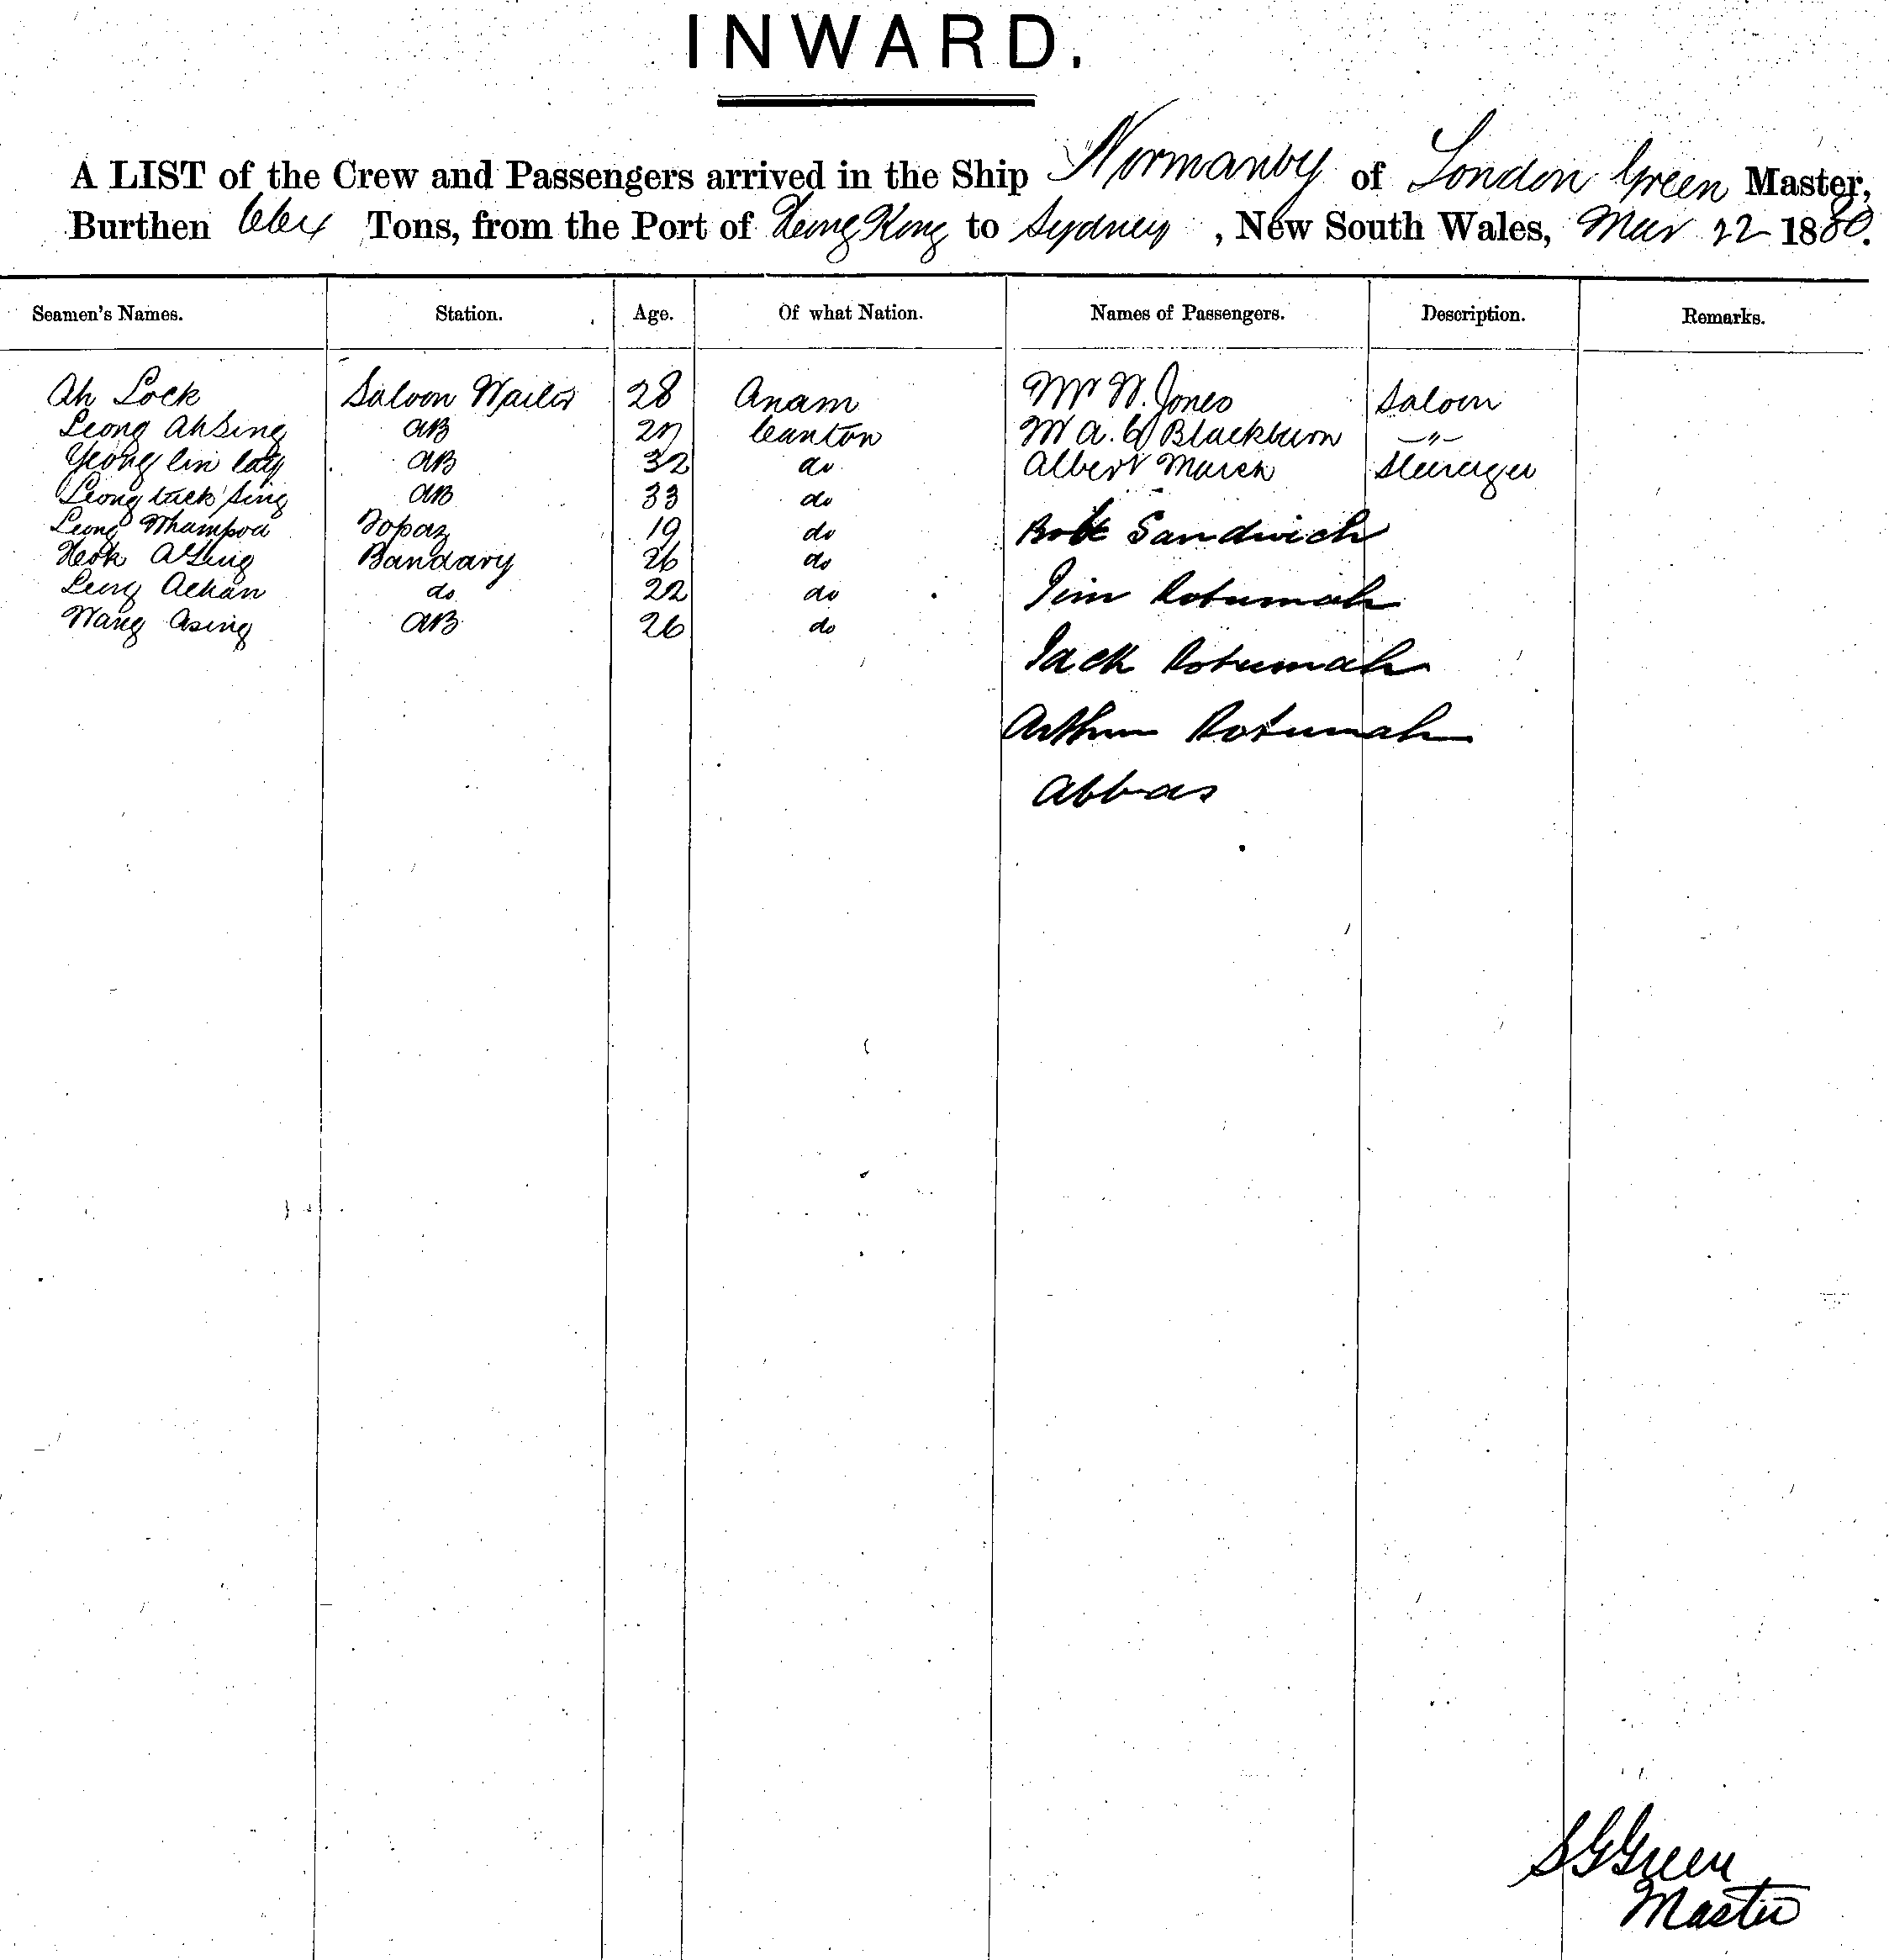 INWARD.
A LIST of the Crew and Passengers arrived in the Ship Normanby of London Green Master,
Burthen Tons, from the Port of Hong Kong to Sydney, New South Wales, Mar 22 1880.
Seamen's Names. Station. Age. Of what Nation. Names of Passengers. Description. Remarks.
Ah Lock Saloon Waiter 28 Anam Mr W. Jones Saloon
Leong Ah Sing AB 27 Canton Mr A. G Blackburn -"-
Yeong lin AB 32 do Albert March Steerage
Leong tuck Sing AB 33 do
Leong Whampoa Topaz 19 do Bob Sandwich
Ah Sing Bandary 26 do
Leong Achan do 22 do Jim Rotumah
Wang Asing AB 26 do
Jack Rotumah
Arthur Rotumah
Abbas
S G Green
Master